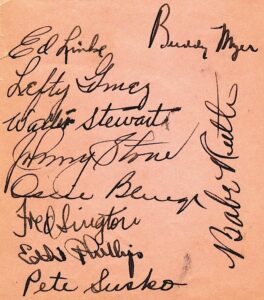 Ed Linke
Buddy Myer
Lefty Gomez
Walter Stewart
Johnny Stone
Ossie Bluege
Fred Sington
Eddie Phillips
Pete Susko
Babe Ruth